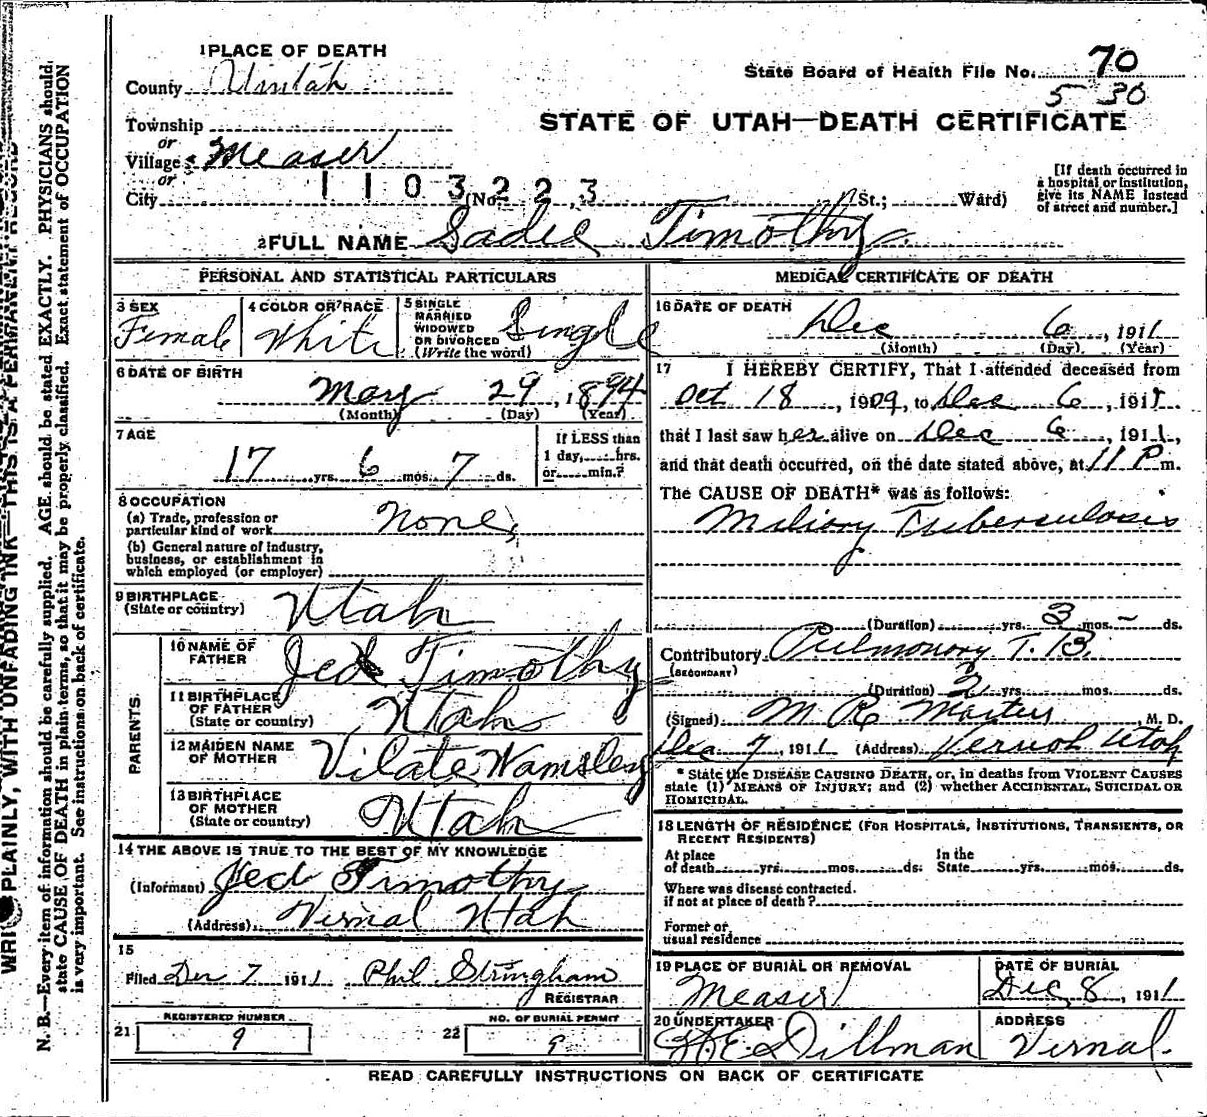 1 PLACE OF DEATH
County Uintah
State Board of Health File No. 70
5 30
STATE OF UTAH—DEATH CERTIFICATE
Township
or
Village Measer
or
City (No. St.; Ward)
1103223
[If death occurred in
a hospital or institution,
give its NAME instead
of street and number.]
2 FULL NAME Sadie Timothy
PERSONAL AND STATISTICAL PARTICULARS
3 SEX
Female
4 COLOR OR RACE
White
5 SINGLE
MARRIED
WIDOWED
OR DIVORCED
(Write the word)
Single
6 DATE OF BIRTH
May 29, 1894
(Month) (Day) (Year)
7 AGE
17 yrs. 6 mos. 7 ds.
If LESS than
1 day, hrs.
or min.?
8 OCCUPATION
(a) Trade, profession or
particular kind of work None
(b) General nature of industry,
business, or establishment in
which employed (or employer)
9 BIRTHPLACE
(State or country) Utah
PARENTS
10 NAME OF
FATHER Jed Timothy
11 BIRTHPLACE
OF FATHER
(State or country) Utah
12 MAIDEN NAME
OF MOTHER Vilate Wamsley
13 BIRTHPLACE
OF MOTHER
(State or country) Utah
14 THE ABOVE IS TRUE TO THE BEST OF MY KNOWLEDGE
(Informant) Jed Timothy
(Address) Vernal Utah
15
Filed Dec 7 1911 Phil Stringham
REGISTRAR
21 REGISTERED NUMBER
9
22 NO. OF BURIAL PERMIT
9
MEDICAL CERTIFICATE OF DEATH
16 DATE OF DEATH
Dec 6, 1911
(Month) (Day) (Year)
17 I HEREBY CERTIFY, That I attended deceased from
Oct 18, 1909, to Dec 6, 1911
that I last saw her alive on Dec 6, 1911,
and that death occurred, on the date stated above, at 11 P m.
The CAUSE OF DEATH* was as follows:
Miliary Tuberculosis
(Duration) yrs. 3 mos. – ds.
Contributory Pulmonory T.B.
(SECONDARY)
(Duration) 2 yrs. mos. ds.
(Signed) M R , M. D.
Dec 7, 1911 (Address) Utah
* State the DISEASE CAUSING DEATH, or, in deaths from VIOLENT CAUSES
state (1) MEANS OF INJURY; and (2) whether ACCIDENTAL, SUICIDAL OR
HOMICIDAL.
18 LENGTH OF RESIDENCE (FOR HOSPITALS, INSTITUTIONS, TRANSIENTS, OR
RECENT RESIDENTS)
At place In the
of death yrs. mos. ds. State yrs. mos. ds.
Where was disease contracted.
if not at place of death?
Former or
usual residence
19 PLACE OF BURIAL OR REMOVAL
Measer
DATE OF BURIAL
Dec 8, 1911
20 UNDERTAKER
Dillman
ADDRESS
Vernal.
READ CAREFULLY INSTRUCTIONS ON BACK OF CERTIFICATE
PLAINLY, WITH UNFADING INK—THIS IS A PERMANENT RECORD
N. B.—Every item of information should be carefully supplied. AGE should be stated EXACTLY. PHYSICIANS should
state CAUSE OF DEATH in plain terms, so that it may be properly classified. Exact statement of OCCUPATION
is very important. See instructions on back of certificate.